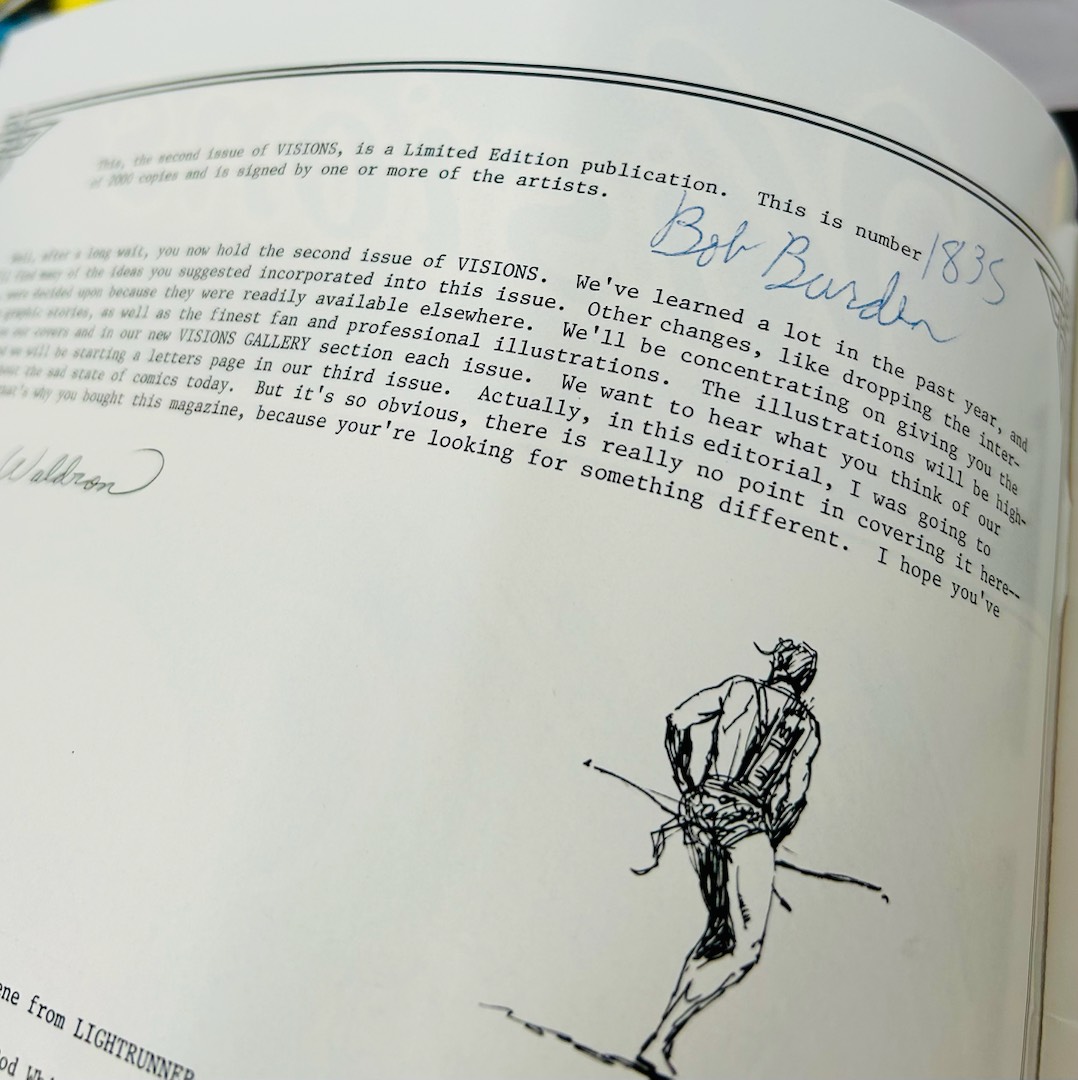 This, the second issue of VISIONS, is a Limited Edition publication. This is number 1835
of 2000 copies and is signed by one or more of the artists.
Bob Burden
Well, after a long wait, you now hold the second issue of VISIONS. We've learned a lot in the past year, and
find many of the ideas you suggested incorporated into this issue. Other changes, like dropping the inter-
were decided upon because they were readily available elsewhere. We'll be concentrating on giving you the
graphic stories, as well as the finest fan and professional illustrations. The illustrations will be high-
our covers and in our new VISIONS GALLERY section each issue. We want to hear what you think of our
we will be starting a letters page in our third issue. Actually, in this editorial, I was going to
the sad state of comics today. But it's so obvious, there is really no point in covering it here--
that's why you bought this magazine, because your're looking for something different. I hope you've
Waldron
ene from LIGHTRUNNER
od Whi